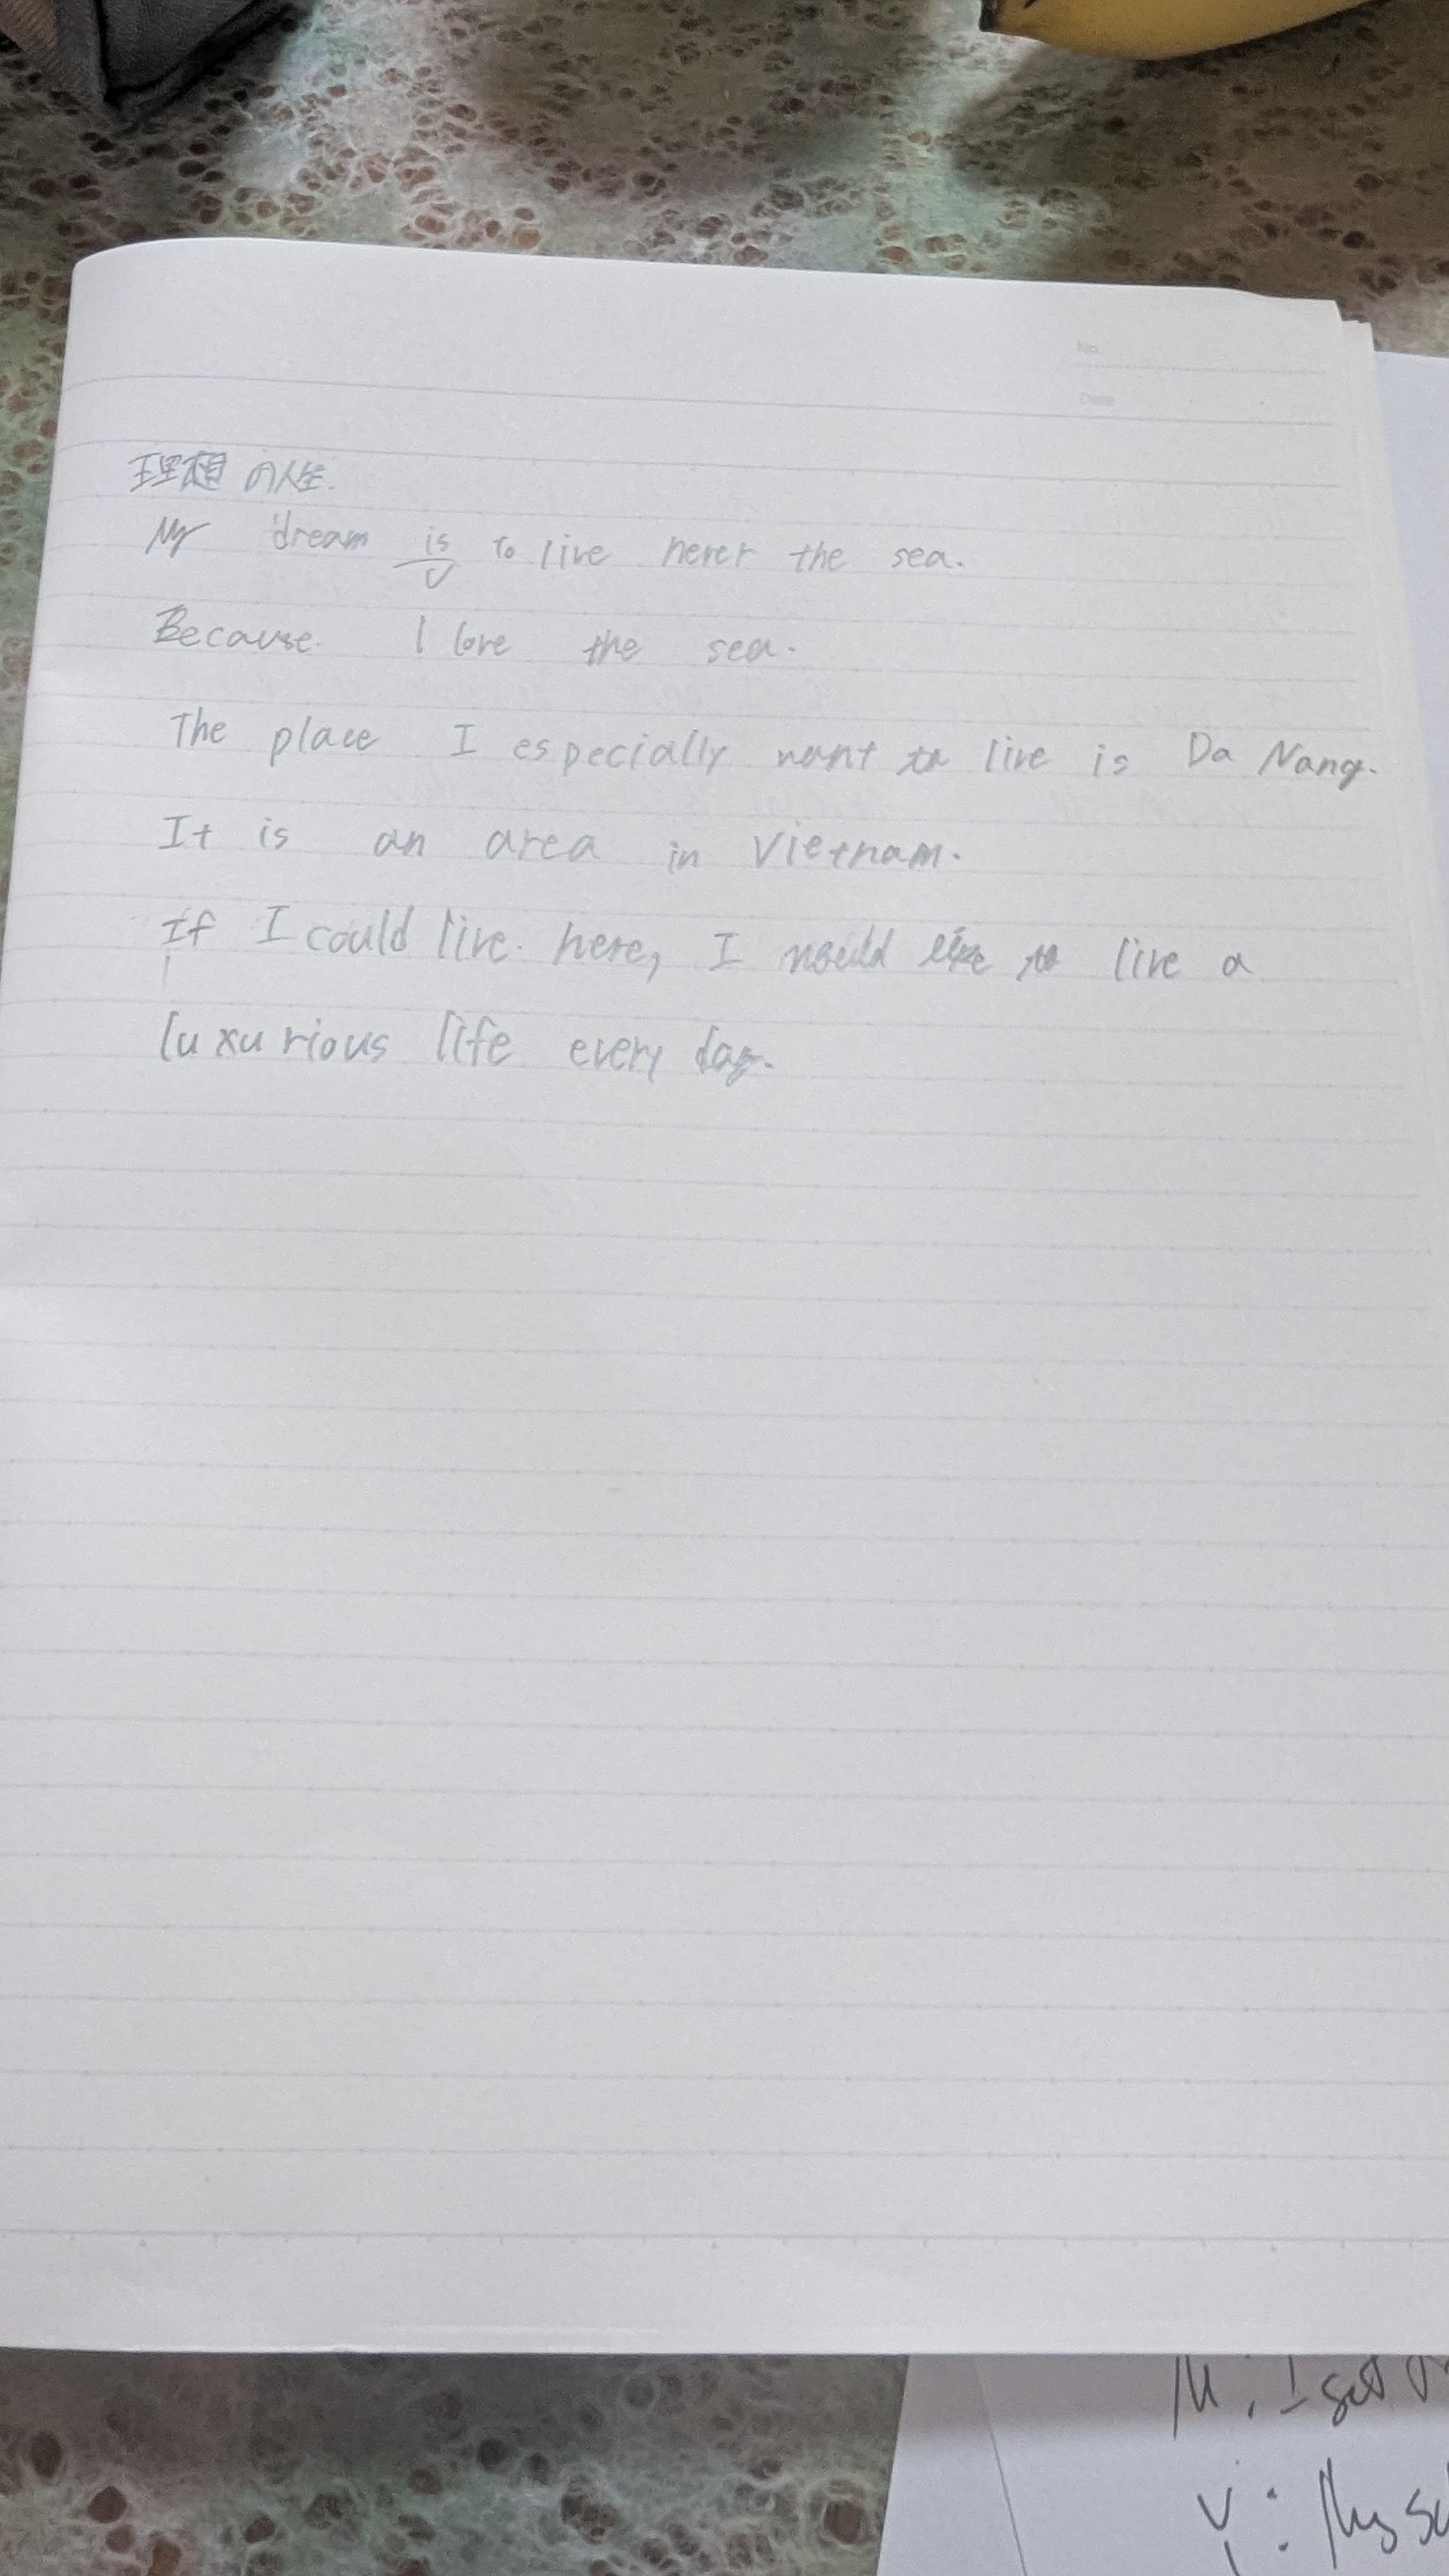 No.
Date
理想の人生.
My dream is to live nerer the sea.
Because. I love the sea.
The place I especially want to live is Da Nang.
It is an area in Vietnam.
If I could live. here, I would like to live a
luxurious life every day.